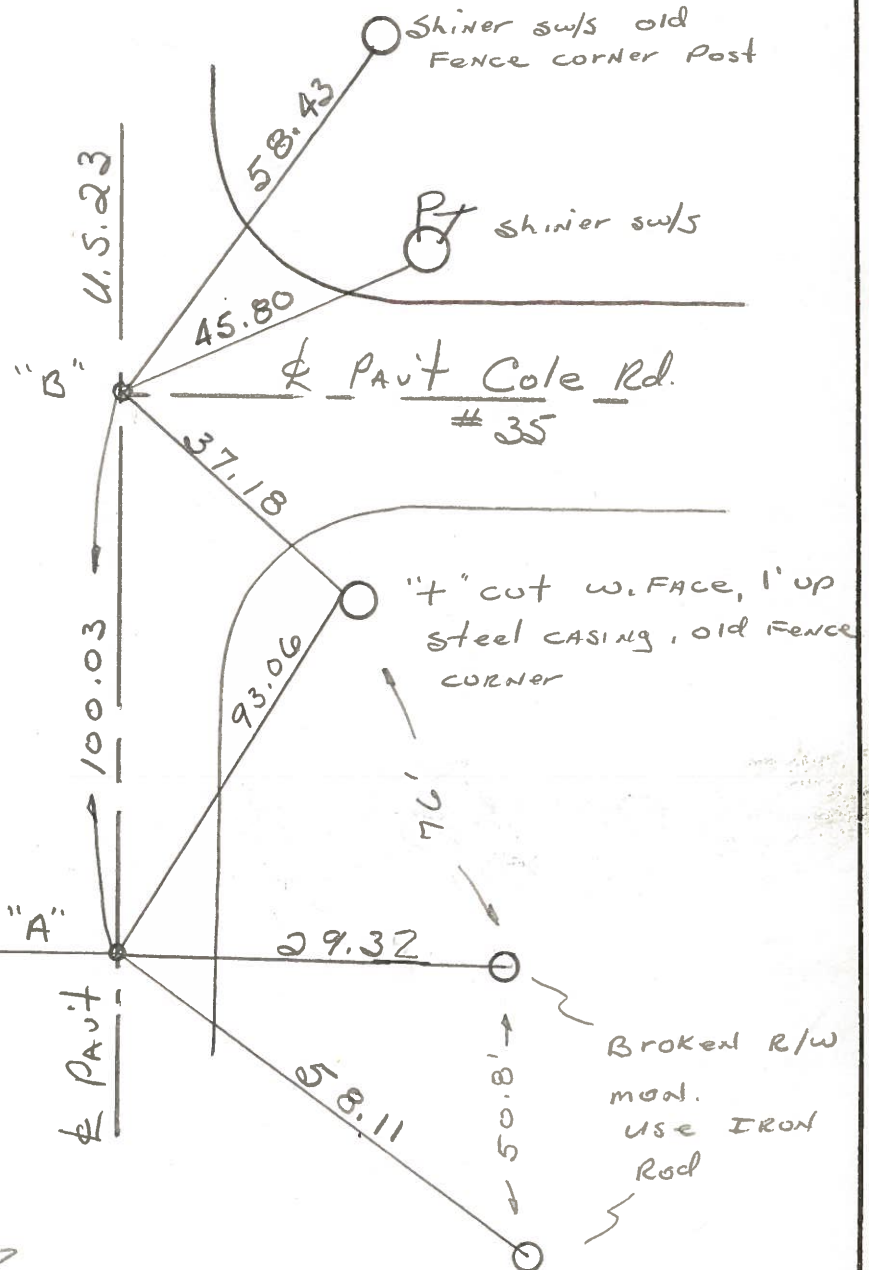 Shiner sw/s old
Fence corner Post
58.43
U.S. 23
P
Shinier sw/s
45.80
"B"
℄ PAv't Cole Rd.
# 35
37.18
"+" cut w. FACE, 1' up
steel CASING, old Fence
CORNER
93.06
100.03
76'
"A"
29.32
℄ PAv't
58.11
50.8'
Broken R/W
mon.
use IRON
Rod